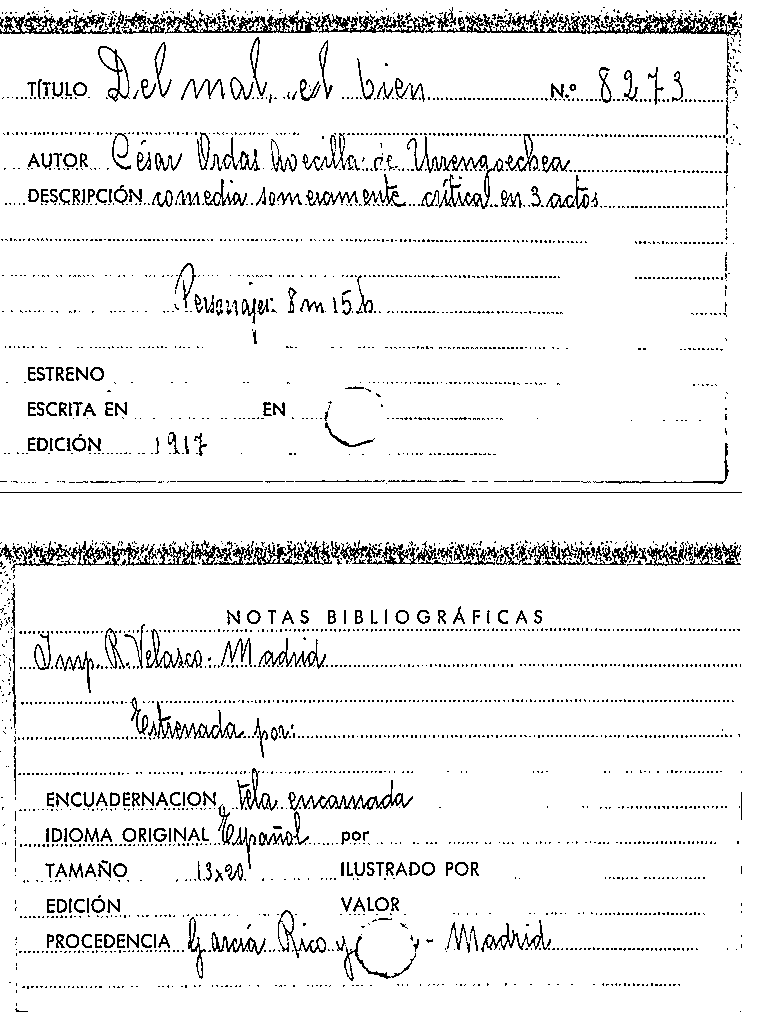 TÍTULO Del mal, el bien N.º 8273
AUTOR César Ordas Avecilla de Urrengoechea
DESCRIPCIÓN comedia someramente crítical en 3 actos
Personajes: 8 m 15 h
ESTRENO
ESCRITA EN EN
EDICIÓN 1917
NOTAS BIBLIOGRÁFICAS
Imp. R. Velasco. Madrid
Estrenada por:
ENCUADERNACION tela encarnada
IDIOMA ORIGINAL Español por
TAMAÑO 13x20 ILUSTRADO POR
EDICIÓN VALOR
PROCEDENCIA García Rico y - Madrid